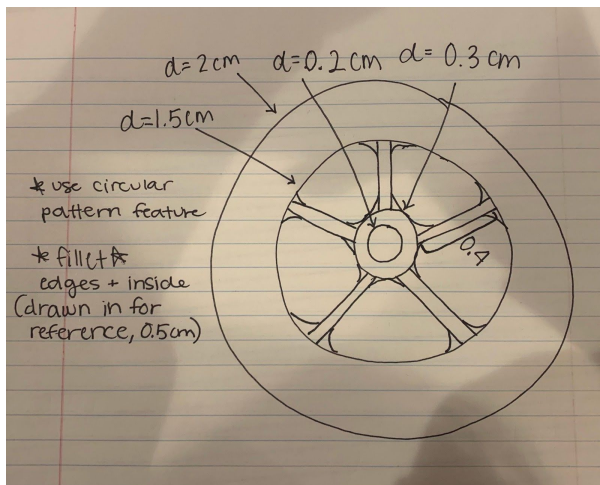 d=2cm
d=0.2cm
d=0.3cm
d=1.5cm
* use circular
pattern feature
* fillet *
edges + inside
(drawn in for
reference, 0.5cm)
0.4